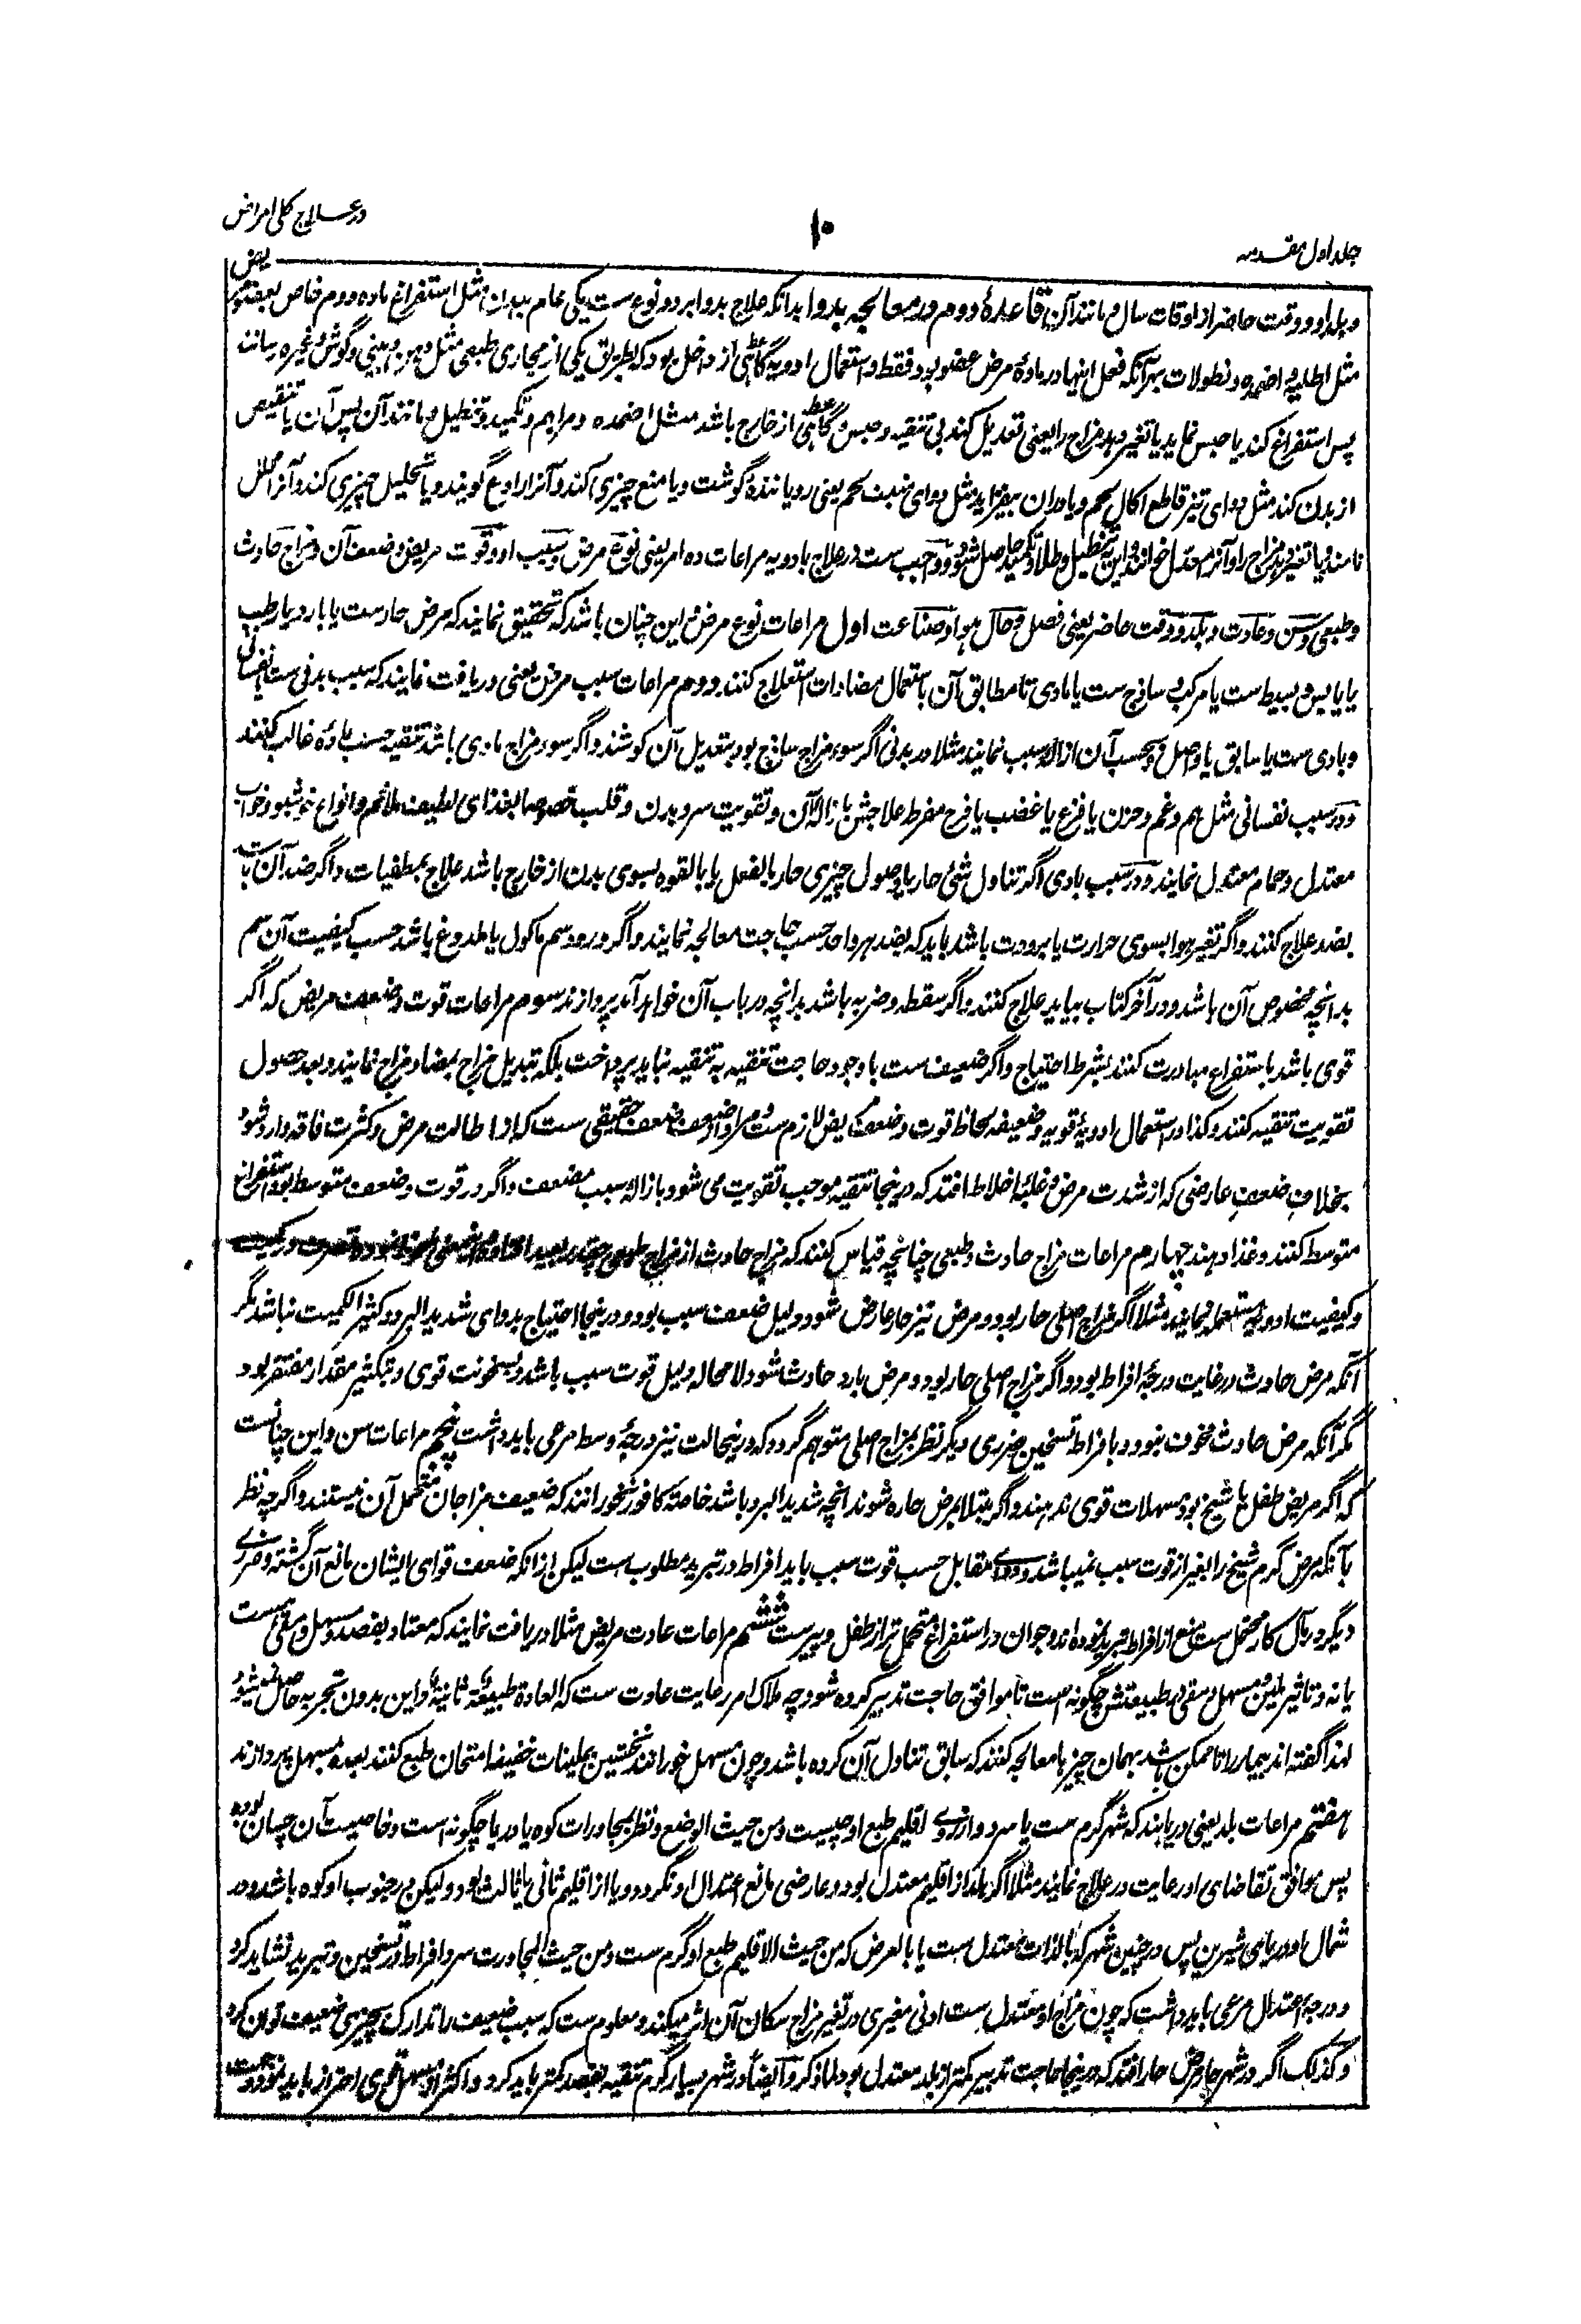 جلد اول مقدمه
۱۰
در علاج کلی امراض
و بلد او و وقت حاضر از اوقات سال و مانند آن قاعدهٔ دوم در معالجه بدوا بدانکه علاج بدوا بر دو نوع ست یکی عام ببدن مثل استفراغ ماده دوم خاص بعضو
مثل اطلیه و اضمده و نطولات بهر آنکه فعل اینها در مادهٔ مرض عضو بود فقط و استعمال ادویه گاهی از داخل بود که بطریق یکی از مجاری طبعی مثل دهن و بینی و گوش و غیره رسانند
پس استفراغ کند یا حبس نماید یا تغیر دهد مزاج را یعنی تعدیل کند بی تنقیه و حبس و گاهی از خارج باشد مثل اضمده و مراهم و تکمید و تنطیل و مانند آن پس آن یا تنقیص
از بدن کند مثل دوای تیز قاطع اکال لحم و یا در آن بیفزاید مثل دوای منبت لحم یعنی رویانندهٔ گوشت و یا منع چیزی کند و آنرا رادع گویند و یا تحلیل چیزی کند و آنرا محلل
نامند و یا تغیر دهد مزاج را و آنرا معدل خوانند و این به تنطیل و طلا و تکمید حاصل شود و واجب ست در علاج بادویه مراعات ده امر یعنی نوع مرض و سبب او و قوت مریض و ضعف آن و مزاج حادث
و طبعی و سن و عادت و بلد و وقت حاضر یعنی فصل و حال هوا و صناعت اول مراعات نوع مرض و این چنان باشد که تحقیق نمایند که مرض حارست یا بارد یا رطب
یا یابس و بسیط ست یا مرکب و ساذج ست یا مادی تا مطابق آن باستعمال مضادات استعلاج کنند دوم مراعات سبب مرض یعنی دریافت نمایند که سبب بدنی ست یا نفسانی
و بادی ست یا سابق یا واصل و بحسب آن ازالهٔ سبب نمایند مثلا در بدنی اگر سوء مزاج ساذج بود بتعدیل آن کوشند و اگر سوء مزاج مادی باشد تنقیه حسب مادهٔ غالب کنند
و در سبب نفسانی مثل هم و غم و حزن یا فزع یا غضب یا فرح مفرط علاجش بازالهٔ آن و تقویت سر و بدن و قلب خصوصا بغذای لطیف ملائم و انواع خوشبو و خواب
معتدل و حمام معتدل نمایند و در سبب بادی اگر تناول شئ حار یا وصول چیزی حار بالفعل یا بالقوه بسوی بدن از خارج باشد علاج بمطفیات و اگر ضد آن باشد
بضد علاج کنند و اگر تغیر هوا بسوی حرارت یا برودت باشد باید که بضد هر واحد حسب حاجت معالجه نمایند و اگر ورود سم ماکول یا ملدوغ باشد حسب کیفیت آن سم
بدانچه مخصوص آن باشد و در آخر کتاب بیاید علاج کنند و اگر سقطه و ضربه باشد بدانچه در باب آن خواهد آمد پردازند سوم مراعات قوت و ضعف مریض که اگر
قوی باشد باستفراغ مبادرت کنند بشرط احتیاج و اگر ضعیف ست باوجود حاجت تنقیه به تنقیه نباید پرداخت بلکه تبدیل مزاج بمضاد مزاج نمایند و بعد حصول
تقویت تنقیه کنند و کذا در استعمال ادویهٔ قویه و ضعیفه لحاظ قوت و ضعف مریض لازم ست و مراد از ضعف ضعف حقیقی ست که از اطالت مرض و کثرت فاقه وارد شود
بخلاف ضعف عارضی که از شدت مرض و غلبهٔ اخلاط افتد که درینجا تنقیه موجب تقویت می شود بازالهٔ سبب مضعف و اگر در قوت و ضعف متوسط بود استفراغ
متوسط کنند و غذا دهند چهارم مراعات مزاج حادث و طبعی چنانچه قیاس کنند که مزاج حادث از مزاج طبعی چقدر بعید
و کیفیت ادویه مستعمله نمایند مثلا اگر مزاج اصلی حار بود و مرض تیز حار عارض شود دلیل ضعف سبب بود و درینجا احتیاج بدوای شدید البرد و کثیر الکمیت نباشد مگر
آنکه مرض حادث در غایت درجهٔ افراط بود و اگر مزاج اصلی حار بود و مرض بارد حادث شود لا محاله دلیل قوت سبب باشد و بسخونت قوی و تکثیر مقدار مفتقر بود
مگر آنکه مرض حادث مخوف نبود و بافراط تسخین ضرری دیگر نظر بمزاج اصلی متوهم گردد که درینحالت نیز درجهٔ وسط مرعی باید داشت پنجم مراعات سن و این چنانست
که اگر مریض طفل یا شیخ بود مسهلات قوی ندهند و اگر مبتلا بمرض حاره شوند انچه شدید البرد باشد خاصة کافور نخورانند که ضعیف مزاجان متحمل آن نیستند و اگرچه نظر
بآنکه مرض گرم شیخ را بغیر از قوت سبب نمیباشد و دوای مقابل حسب قوت سبب باید افراط در تبرید مطلوب ست لیکن ازانکه ضعف قوای ایشان مانع آن گشته و ضرری
دیگر در مآل کار محتمل ست منع از افراط تبرید نموده اند و جوان در استفراغ متحمل تر از طفل و پیرست ششم مراعات عادت مریض مثلا دریافت نمایند که معتاد بفصد و مسهل و مقی هست
یا نه و تاثیر ملین و مسهل و مقی در طبیعتش چگونه است تا موافق حاجت تدبیر کرده شود چه ملاک امر رعایت عادت ست که العادة طبیعة ثانیة و این بدون تجربه حاصل نمیشود
لهذا گفته اند بیمار را تا ممکن باشد بهمان چیزها معالجه کنند که سابق تناول آن کرده باشد و چون مسهل خورانند نخستین بملینات خفیفه امتحان طبع کنند بعده بمسهل پردازند
هفتم مراعات بلد یعنی دریابند که شهر گرم ست یا سرد و از روی اقلیم طبع او چیست و من حیث الوضع و نظر بمجاورات کوه یا دریا چگونه است و خاصیت آن چسان بوده
پس موافق تقاضای او رعایت در علاج نمایند مثلا اگر بلد از اقلیم معتدل بود و عارضی مانع اعتدال او نگردد و یا از اقلیم ثانی یا ثالث بود ولیکن بر جنوب او کوه باشد و در
شمال او دریای شیرین پس در چنین شهر که بالذات معتدل ست یا بالعرض که من حیث الاقلیم طبع او گرم ست و من حیث المجاورت سرد افراط در تسخین و تبرید نشاید کرد
و درجهٔ اعتدال مرعی باید داشت که چون مزاج او معتدل ست ادنی مغیری در تغیر مزاج سکان آن اثر میکند و معلوم ست که سبب ضعیف را تدارک بچیزی ضعیف توان کرد
و کذلک اگر در شهر حار مرض حار افتد که درینجا حاجت تدبیر کمتر از بلد معتدل بود لما ذکر و ایضا در شهر بسیار گرم تنقیه بفصد کمتر باید کرد و اکثر از مسهل قوی احتراز باید نمود